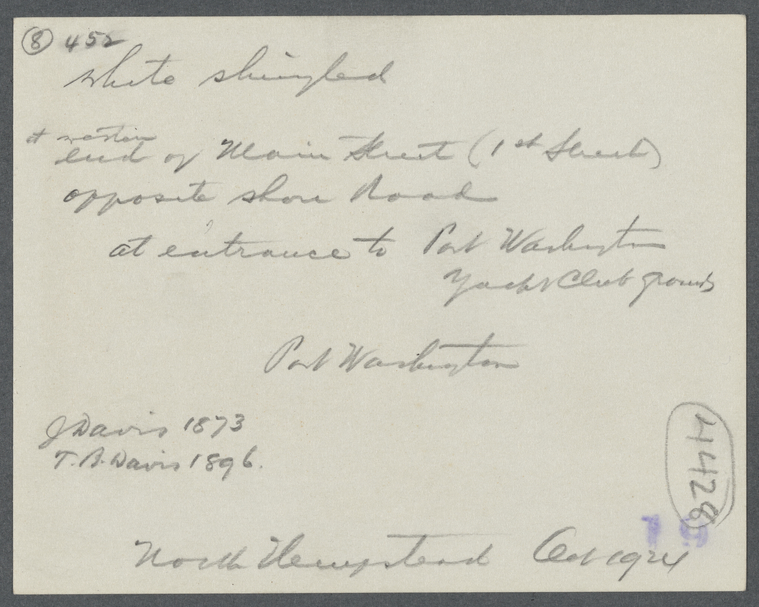 8 452
white shingled
at western
end of Main Street (1st Street)
opposite shore Road
at entrance to Port Washington
Yacht Club grounds
Port Washington
J Davis 1873
T. B. Davis 1896.
4428
North Hempstead Oct 1924